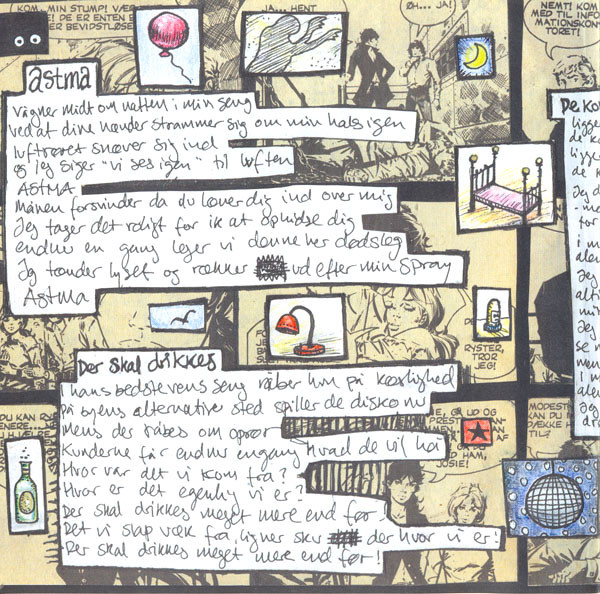 KOM, MIN STUMP! VÆR
DE ER ENTEN
BEVIDSTLØSE
JA... HENT
ØH... JA!
NEMT! KOM
MED TIL INFOR
MATIONSKON
TORET!
astma
Vågner midt om natten i min seng
ved at dine hænder strammer sig om min hals igen
luftrøret snæver sig ind
og jeg siger "vi ses igen" til luften
ASTMA
Månen forsvinder da du læner dig ind over mig
Jeg tager det roligt for ik at ophidse dig
endnu en gang leger vi denne her dødsleg
Jeg tænder lyset og rækker ud efter min spray
Astma
De kom
ligge
de k
ligge
de k
Jeg d
i mi
for
i m
aler
Jeg
alti
mi
Jeg
se
men
i m
aler
Jeg
RYSTER,
TROR
JEG!
Der skal drikkes
I hans bedstevens seng råber hun på kærlighed
på byens alternative sted spiller de disko nu
Mens der råbes om oprør
Kunderne får endnu engang hvad de vil ha
Hvor var det vi kom fra?
Hvor er det egentlig vi er?
Der skal drikkes meget mere end før
Det vi slap væk fra ligner sku der hvor vi er!
Der skal drikkes meget mere end før!
DU KAN
GÅ UD OG
HAM,
JOSIE!
MODEST
KAN DU
HØRE
TIL?